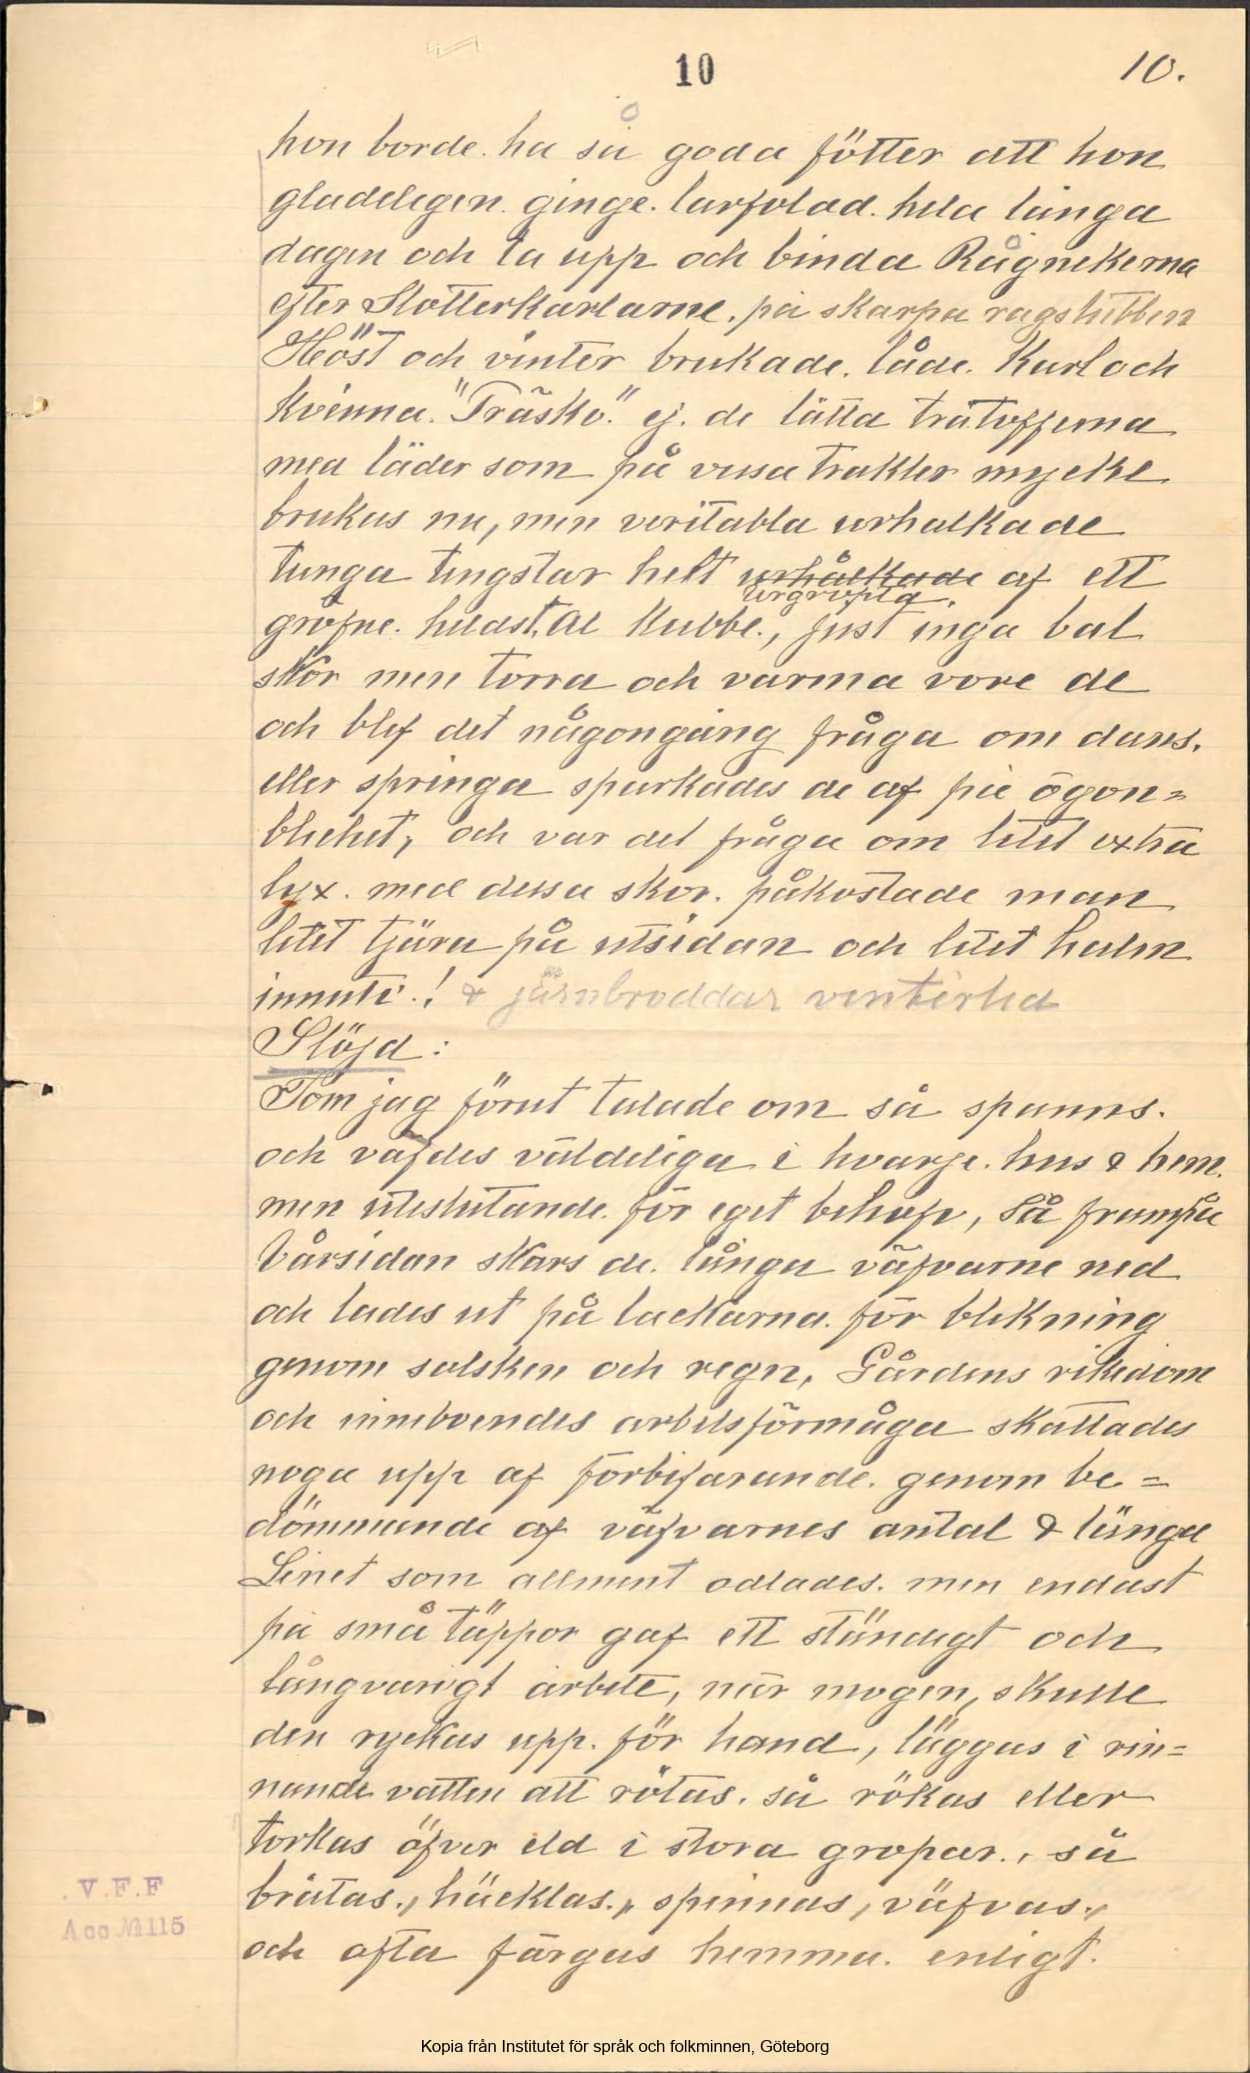 10
10.
hon borde. ha så goda fötter att hon
gladeligen. ginge. barfotad. hela långa
dagen och ta upp och binda Rågnekerna
efter Slotterkarlarne. på skarpa ragstubben
Höst och vinter brukade. både. Karl och
kvinna. "Träsko." ej. de lätta trätofferna
med läder som på vissa trakter mycket
brukas nu, men veritabla urhalkade
tunga tingstar helt urhålkade af ett
urgröpta.
gröfre. helast. Al kubbe., just inga bal
skor men torra och varma vore de
och blef det någongång fråga om dans.
eller springa sparkades de af på ögon=
blicket, och var det fråga om litet extra
lyx. med dessa skor. påkostade man
litet tjära på utsidan och litet halm
innuti.! & järnbroddar vintertid
Slöjd:
Som jag förut talade om så spanns.
och väfdes väldeliga i hvarje. hus & hem.
men uteslutande. för eget behof, Så frampå
Vårsidan skars de. långa väfvarne ned
och lades ut på backarna. för blekning
genom solsken och regn, Gårdens rikedom
och inneboendes arbetsförmåga skattades
noga upp af förbifarande. genom be=
dömmande af väfvarnes antal & längd
Linet som allment odlades. men endast
på små täppor gaf ett ständigt och
långvarigt arbete, när mogen, skulle
den ryckas upp. för hand, läggas i rin=
nande vatten att rötas. så rökas eller
torkas öfver eld i stora gropar., så
bråtas., häcklas., spinnas, väfvas.,
och ofta färgas hemma. enligt.
V.F.F
Acc № 115
Kopia från Institutet för språk och folkminnen, Göteborg